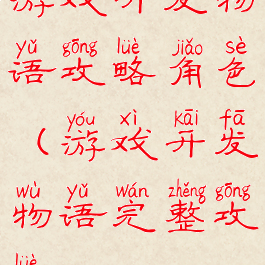 游戏开发物
yǔ gōng lüè jiǎo sè
语攻略角色
yóu xì kāi fā
（游戏开发
wù yǔ wán zhěng gōng
物语完整攻
lüè